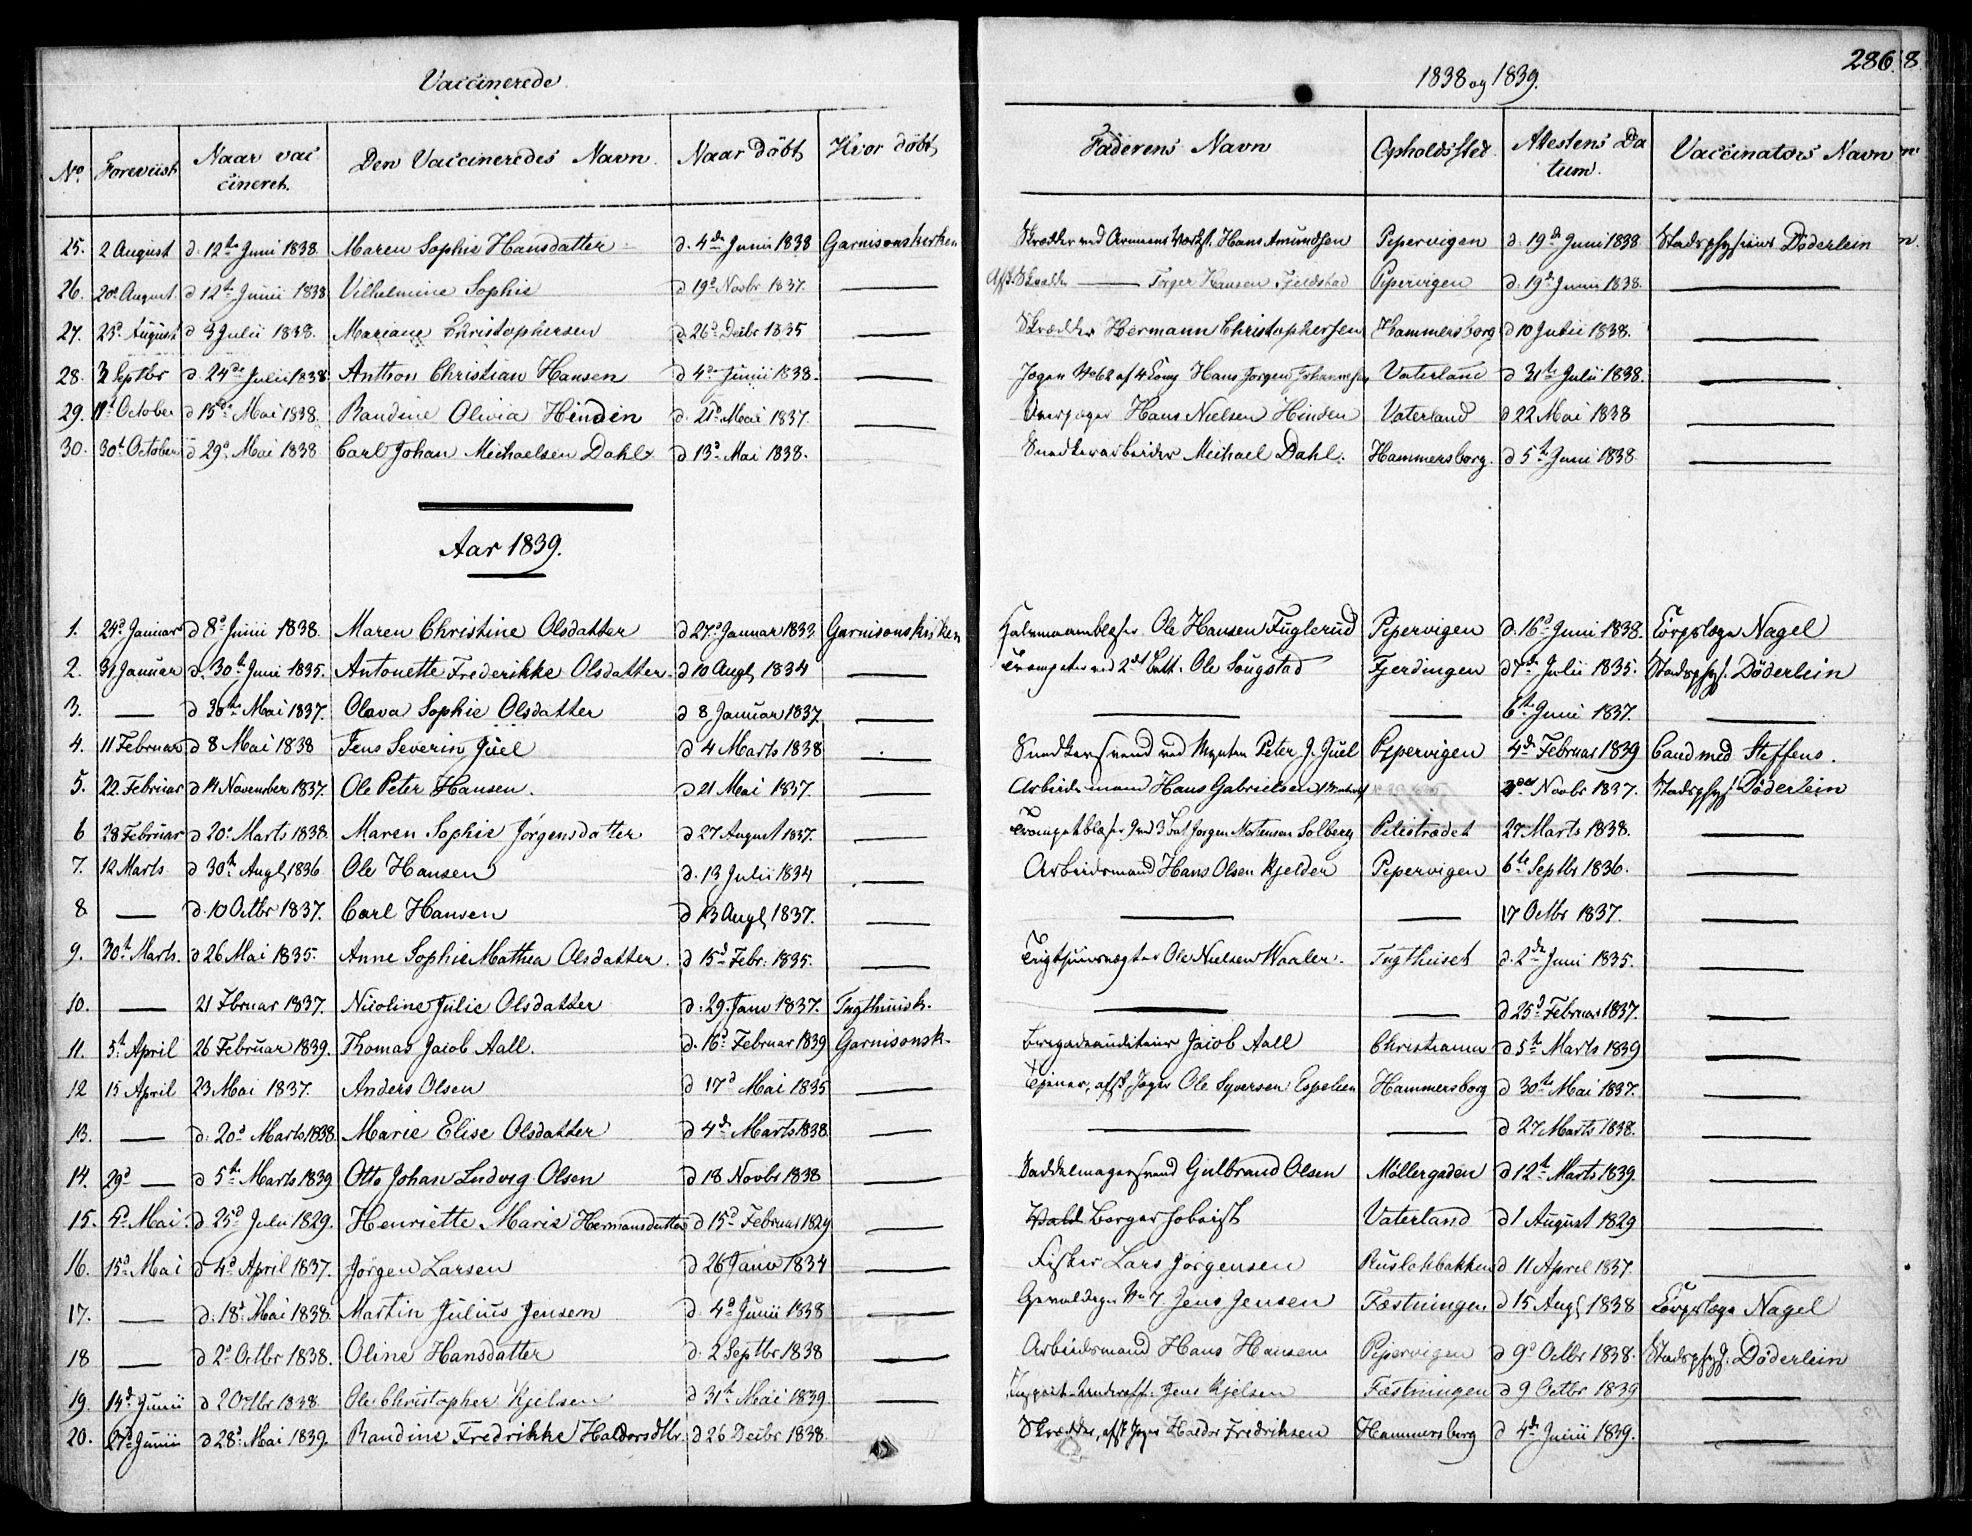 Vaccinerede
1838 og 1839.
286
8
No. Foreviist Naar vaccineret. Den Vaccineredes Navn. Naar Döbt Hvor döbt Faderens Navn Opholdssted Attestens Datum. Vaccinators Navn
25. 2 August d. 12te Juni 1838 Maren Sophie Hansdatter d. 4de Juni 1838 Garnisonskirken Skrædder ved Hans Amundsen Pepervigen d. 19de Juni 1838 Stadsphysicus Döderlein
26. 20d August d 12te Junii 1838 Vilhelmine Sophie d 19d Novbr 1837. — Afsk. Skrædder — Torger Hansen Fjeldstad Pepervigen d. 19d Junii 1838. —
27. 23d August d 3 Julii 1838. Mariane Christophersen d 26d Decbr 1835 — Skrædder Hermann Christophersen Hammersborg d 10 Julii 1838. —
28. 3 Septbr d. 24de Julii 1838 Anthon Christian Hansen d 4de Junii 1838. — Jæger No 62 af 4 Comp Hans Jørgen Johannesen Vaterland d 31te Julii 1838. —
29. 11t October d 15de Mai 1838. Randine Olivia Hinden d. 21d Mai 1837. — Overjæger Hans Nielsen Hinden Vaterland d 22 Mai 1838 —
30. 30t October d 29d Mai 1838 Carl Johan Michaelsen Dahl d 13d Mai 1838. — Snedkerarbeider Michael Dahl. Hammersborg. d 5te Juni 1838 —
Aar 1839.
1. 24d Januar d 8d Junii 1838. Maren Christine Olsdatter d 27d Januar 1833 Garnisonskirken Halvmaanblæser Ole Hansen Fuglerud Pepervigen d. 16d Juni 1838. Corpslæge Nagel
2. 31 Januar d. 30te Juni 1835. Antonette Frederikke Olsdatter d 10 Augt 1834 — Trompeter ved 2det Batt. Ole Sougstad Fjerdingen d 7de Julii 1835. Stadsphys. Döderlein
3. — d 30te Mai 1837. Olava Sophie Olsdatter d 8 Januar 1837 — — — 6te Juni 1837. —
4. 11 Februar d 8 Mai 1838 Jens Severin Juel d 4 Marts 1838 — Snedkersvend ved Mynten Peter J. Juel Pepervigen 4de Februar 1839 Cand med Steffens.
5. 22. Februar d 14 November 1837. Ole Peter Hansen. d 21 Mai 1837. — Arbeidsmand Hans Gabrielsen Novbr 1837. Stadsphys. Döderlein
6 28 Februar d 20d Marts 1838 Maren Sophie Jörgensdatter d 27 August 1837. — Trompetblæser ved 3 Bat Jørgen Mortensen Solberg Pilestrædet 27 Marts 1838. —
7. 12 Marts d 30te Augt 1836 Ole Hansen d. 13 Julii 1834 — Arbeidsmand Hans Olsen Kjelder Pepervigen 6te Septbr 1836. —
8 — d. 10 Octbr 1837. Carl Hansen d 13 Augt 1837. — — — 17 Octbr 1837. —
9. 30t Marts. d 26 Mai 1835. Anne Sophie Mathea Olsdatter. d 15d Febr. 1835. — Tugthuusvægter Ole Nielsen Waaler. Tugthuset d. 2de Juni 1835. —
10. — 21 Februar 1837. Nicoline Julie Olsdatter d. 29. Janu 1837. Tugthuusk. — — d 25d Februar 1837. —
11. 5t April 26 Februar 1839. Thomas Jacob Aall. d. 16d Februar 1839 Garnisonsk. Brigadeauditeur Jacob Aall Christiania d 5te Marts 1839 —
12 15 April 23 Mai 1837. Anders Olsen d 17d Mai 1835 — Tjener, afsk. Jæger Ole Syversen Espelien Hammersborg d 30te Mai 1837. —
13. — d. 20d Marts 1838. Marie Elise Olsdatter d 4de Marts 1838 — — — d 27 Marts 1838. —
14. 29d — d 5te Marts 1839 Otto Johan Ludvig Olsen d 18 Novbr 1838 — Saddelmagersvend Gulbrand Olsen Möllergaden d 12te Marts 1839. —
15. 4d Mai d 25d Julii 1829. Henriette Marie Hermansdatter d 15d Februar 1829 — Berger Hoboist Vaterland d 1 August 1829 —
16. 15d Mai d 4d April 1837. Jörgen Larsen d 26 Janu 1834 — Fisker Lars Jörgensen Ruslökbakken d 11 April 1837. —
17. — d. 18d Mai 1838. Martin Julius Jensen d. 4d Junii 1838 — Gevaldiger No 7 Jens Jensen Fæstningen d 15 Augt 1838 Corpslæge Nagel
18 — d 2d Octbr 1838. Oline Hansdatter d. 2 Septbr 1838 — Arbeidsmand Hans Hansen Pepervigen d 9d Octbr 1838. Stadsphys. Döderlein
19. 14d Junii d 2 Octbr 1838 Ole Christopher Kjelsen d 31te Mai 1839. — Jens Kjelsen Fæstningen d 9 Octbr 1839 —
20. 27d Junii d 28d Mai 1839. Randine Fredrikke Haldorsdtr. d 26 Decbr 1838. — Skrædder, afsk Jæger Haldor Fredriksen Hammersborg d 4de Junii 1839. —